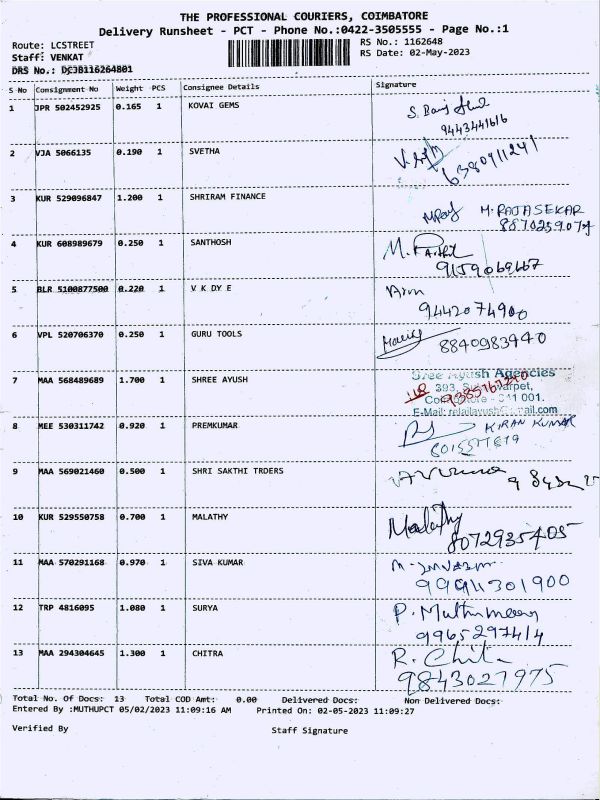 THE PROFESSIONAL COURIERS, COIMBATORE
Delivery Runsheet - PCT - Phone No.:0422-3505555 - Page No.:1
Route: LCSTREET RS No.: 1162648
Staff: VENKAT RS Date: 02-May-2023
DRS No.: DCJB116264801
S No Consignment No Weight PCS Consignee Details Signature
1 JPR 502452925 0.165 1 KOVAI GEMS
9443441616
2 VJA 5066135 0.190 1 SVETHA
6380911241
3 KUR 529096847 1.200 1 SHRIRAM FINANCE M. RAJASEKAR
8870259074
4 KUR 608989679 0.250 1 SANTHOSH
9159069667
5 BLR 5100877500 0.220 1 V K DY E
9442074900
6 VPL 520706370 0.250 1 GURU TOOLS 8840983940
7 MAA 568489689 1.700 1 SHREE AYUSH Agencies
393,
001.
E-Mail:
8 MEE 530311742 0.920 1 PREMKUMAR KIRAN KUMAR
9 MAA 569021460 0.500 1 SHRI SAKTHI TRDERS
10 KUR 529550758 0.700 1 MALATHY Malathy
8072935405
11 MAA 570291168 0.970 1 SIVA KUMAR
12 TRP 4816095 1.080 1 SURYA
9965297414
13 MAA 294304645 1.300 1 CHITRA R. Chitra
9843027975
Total No. Of Docs: 13 Total COD Amt: 0.00 Delivered Docs: Non Delivered Docs:
Entered By :MUTHUPCT 05/02/2023 11:09:16 AM Printed On: 02-05-2023 11:09:27
Verified By Staff Signature